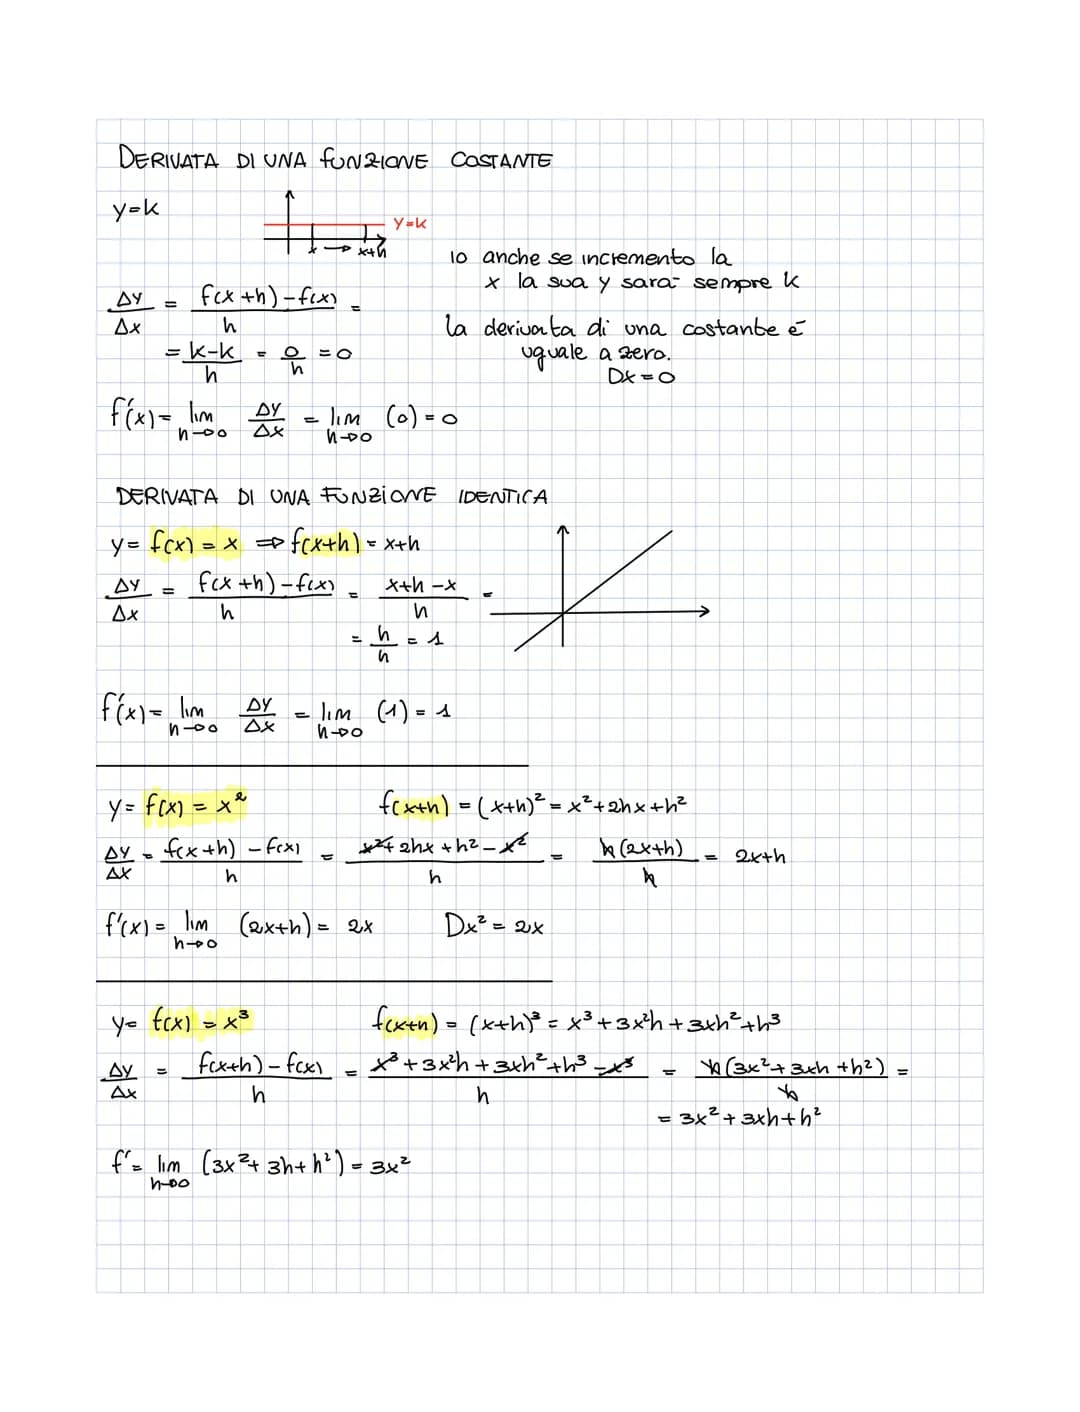 DERIVATA DI UNA FUNZIONE COSTANTE
y=k
y=k
x → x+h
io anche se incremento la
x la sua y sarà sempre k
Δy/Δx = f(x+h)-f(x)/h =
= k-k/h = 0/h = 0
la derivata di una costante é
uguale a zero.
Dk=0
f'(x)= lim h→0 Δy/Δx = lim h→0 (0) = 0
DERIVATA DI UNA FUNZIONE IDENTICA
y= f(x) = x ⇒ f(x+h) = x+h
Δy/Δx = f(x+h)-f(x)/h = x+h-x/h =
= h/h = 1
f'(x)= lim h→0 Δy/Δx = lim h→0 (1) = 1
y= f(x) = x² f(x+h) = (x+h)² = x²+2hx+h²
Δy/Δx = f(x+h)-f(x)/h = x²+2hx+h²-x²/h = h(2x+h)/h = 2x+h
f'(x)= lim h→0 (2x+h) = 2x Dx² = 2x
y= f(x) = x³ f(x+h) = (x+h)³ = x³+3x²h+3xh²+h³
Δy/Δx = f(x+h)-f(x)/h = x³+3x²h+3xh²+h³-x³/h = h(3x²+3xh+h²)/h =
= 3x²+3xh+h²
f'= lim h→0 (3x²+3h+h²) = 3x²